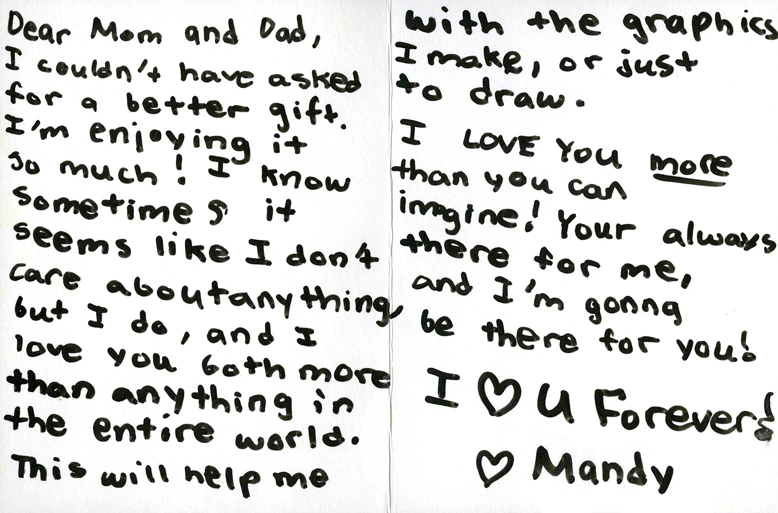 Dear Mom and Dad,
I couldn't have asked
for a better gift.
I'm enjoying it
so much! I know
sometimes it
seems like I don't
care aboutanything,
but I do, and I
love you both more
than anything in
the entire world.
This will help me
with the graphics
I make, or just
to draw.
I LOVE YOU more
than you can
imagine! Your always
there for me,
and I'm gonna
be there for you!
I ♡ U Forever!
♡ Mandy